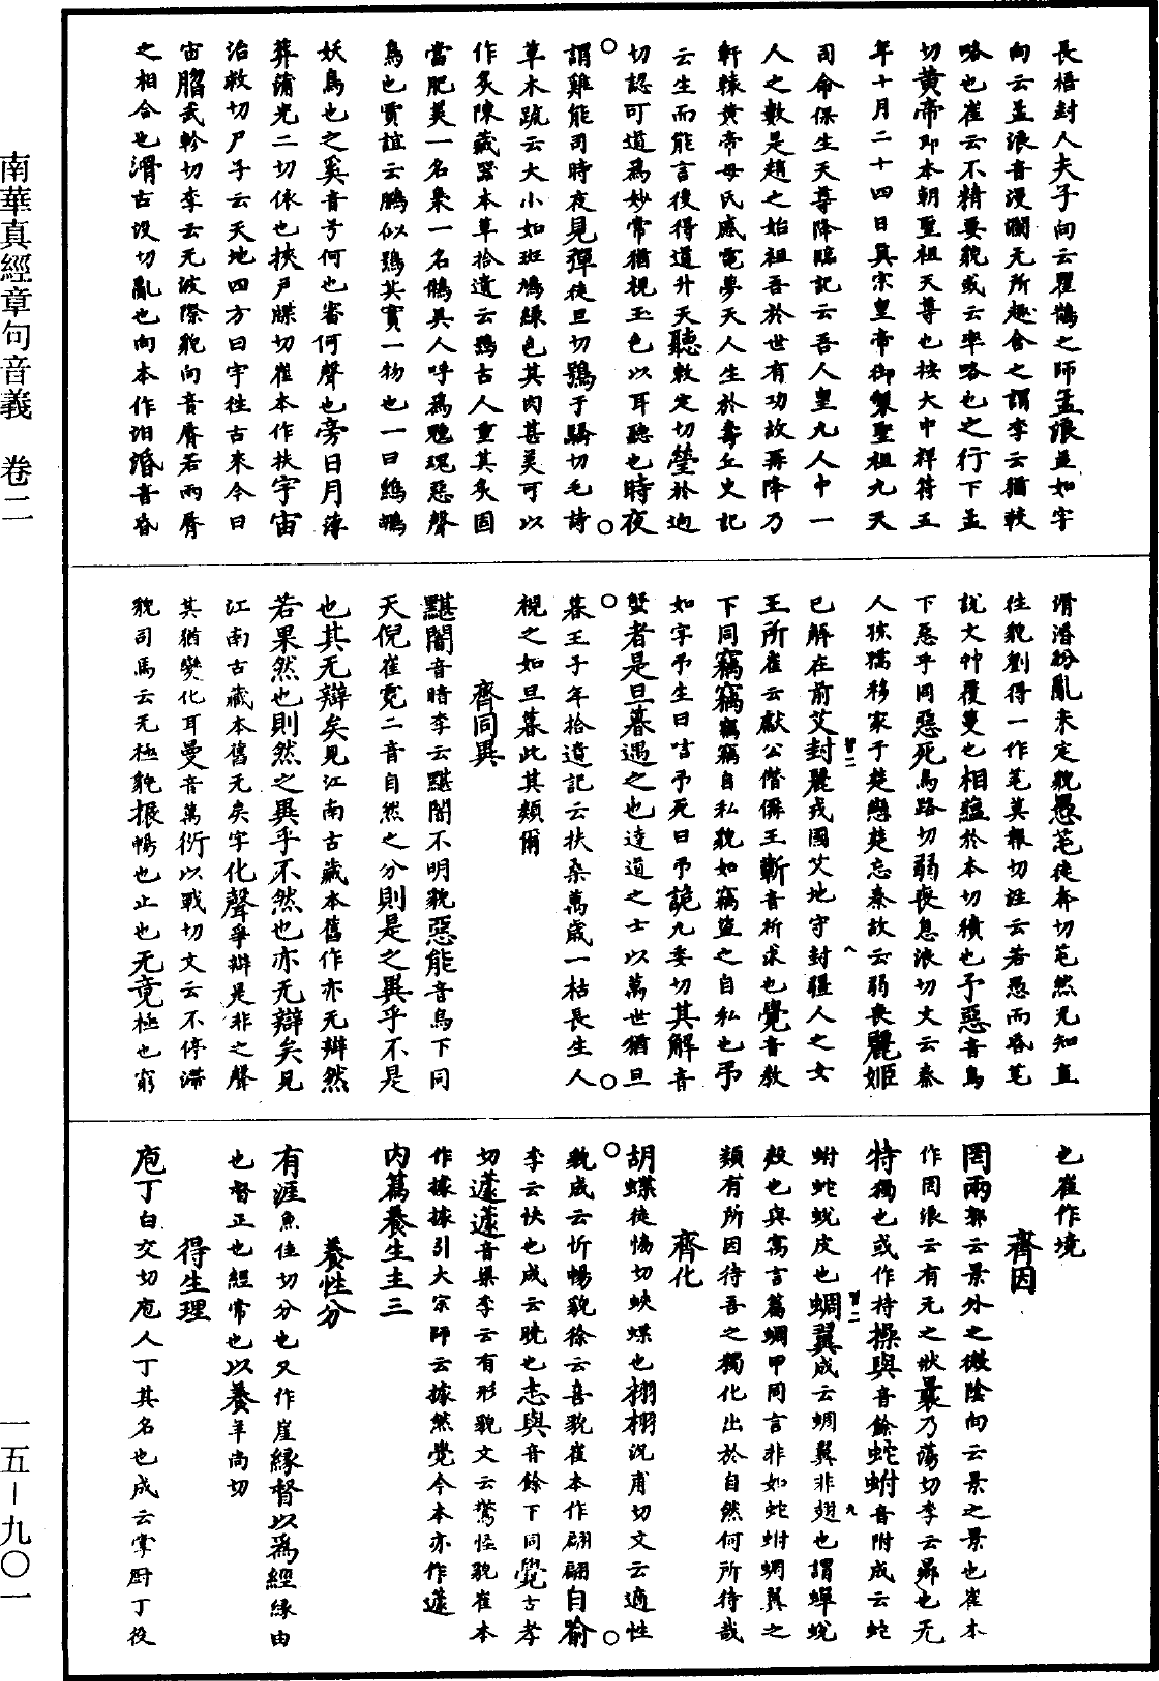 長梧封人夫子向云瞿鵲之師孟浪並如字
向云孟浪音漫瀾无所趣舍之謂李云猶較
咯也崔云不精要貌或云率略也之行下孟
切黃帝即本朝聖祖天尊也按大中祥符五
年十月二十四日真宗皇帝御製聖祖九天
司命保生天尊降臨記云吾人皇九人中一
人之數是趙之始祖吾於世有功故再降乃
軒轅黃帝母氏感電夢天人生於壽丘史記
云生而能言後得道升天聽敕定切瑩於迥
切認可道為妙常猶視玉色以耳聽也時夜
○謂雞能司時夜見彈徒旦切鴞于驕切毛詩○
草木疏云大小如班鳩綠色其肉甚美可以
作炙陳藏器本草拾遺云鴞古人重其炙固
當肥美一名梟一名鵩吳人呼為魑魂惡聲
鳥也賈誼云鵩似鴞其實一物也一曰鵂鶹
妖鳥也之奚音兮何也審何聲也旁日月薄
葬蒲光二切依也挾戶牒切崔本作扶宇宙
治救切尸子云天地四方曰宇往古來今曰
宙脗武軫切李云无波際貌向音脣若兩脣
之相合也滑古沒切亂也向本作汩涽音昏
滑涽紛亂未定貌愚芚徒奔切芚然无知直
往貌劉得一作芼莫報切註云若愚而昏芼
說文艸覆蔓也相蘊於本切積也予惡音烏
下惡乎同惡死烏路切弱喪息浪切文云秦
人狝孺移家于楚戀楚忘秦故云弱喪麗姬
已解在前艾封麗戎國艾地守封疆人之女
王所崔云獻公僭僻王蘄音祈求也覺音教
下同竊竊竊竊自私貌如竊盜之自私也予
如字予生曰唁予死曰弔詭九委切其解音
蟹者是旦暮遇之也達道之士以萬世猶旦
○暮王子年拾遺記云扶桑萬歲一枯長生人○
視之如旦暮此其類爾
齊同異
黮闇音暗李云黮闇不明貌惡能音烏下同
天倪崔霓二音自然之分則是之異乎不是
也其无辯矣見江南古藏本舊作亦无辯然
若果然也則然之異乎不然也亦无辯矣見
江南古藏本舊无矣字化聲爭辯是非之聲
其猶變化耳曼音萬衍以戰切文云不停滯
貌司馬云无極貌振暢也止也无竟極也窮
也崔作境
齊因
罔兩郭云景外之微陰向云景之景也崔本
作罔浪云有无之狀曩乃蕩切李云曏也无
特獨也或作持操與音餘蛇蚹音附成云蛇
蚹蛇蛻皮也蜩翼成云蜩翼非翅也謂蟬蛻
殼也與寓言篇蜩甲同言非如蛇蚹蜩翼之
類有所因待吾之獨化出於自然何所待哉
齊化
胡蝶徒協切蛺蝶也栩栩況甫切文云適性
○貌成云忻暢貌徐云喜貌崔本作翩翩自喻○
李云快也成云曉也志與音餘下同覺古孝
切蘧蘧音渠李云有形貌文云驚怪貌崔本
作據據引大宗師云據然覺今本亦作蘧
內篇養生主三
養性分
有涯魚佳切分也又作崖緣督以為經緣由
也督正也經常也以養羊尚切
得生理
庖丁白交切庖人丁其名也成云掌廚丁役
南華真經章句音義　卷二
一五—九〇一